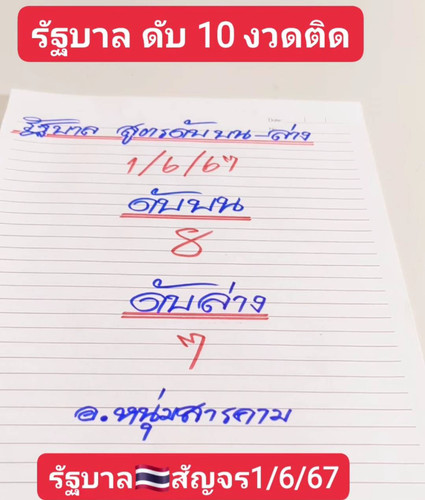 รัฐบาล ดับ 10 งวดติด
รัฐบาล สูตรดับบน-ล่าง
1/6/67
ดับบน
8
ดับล่าง
7
อ.หนุ่มสารคาม
รัฐบาล🇹🇭สัญจร1/6/67